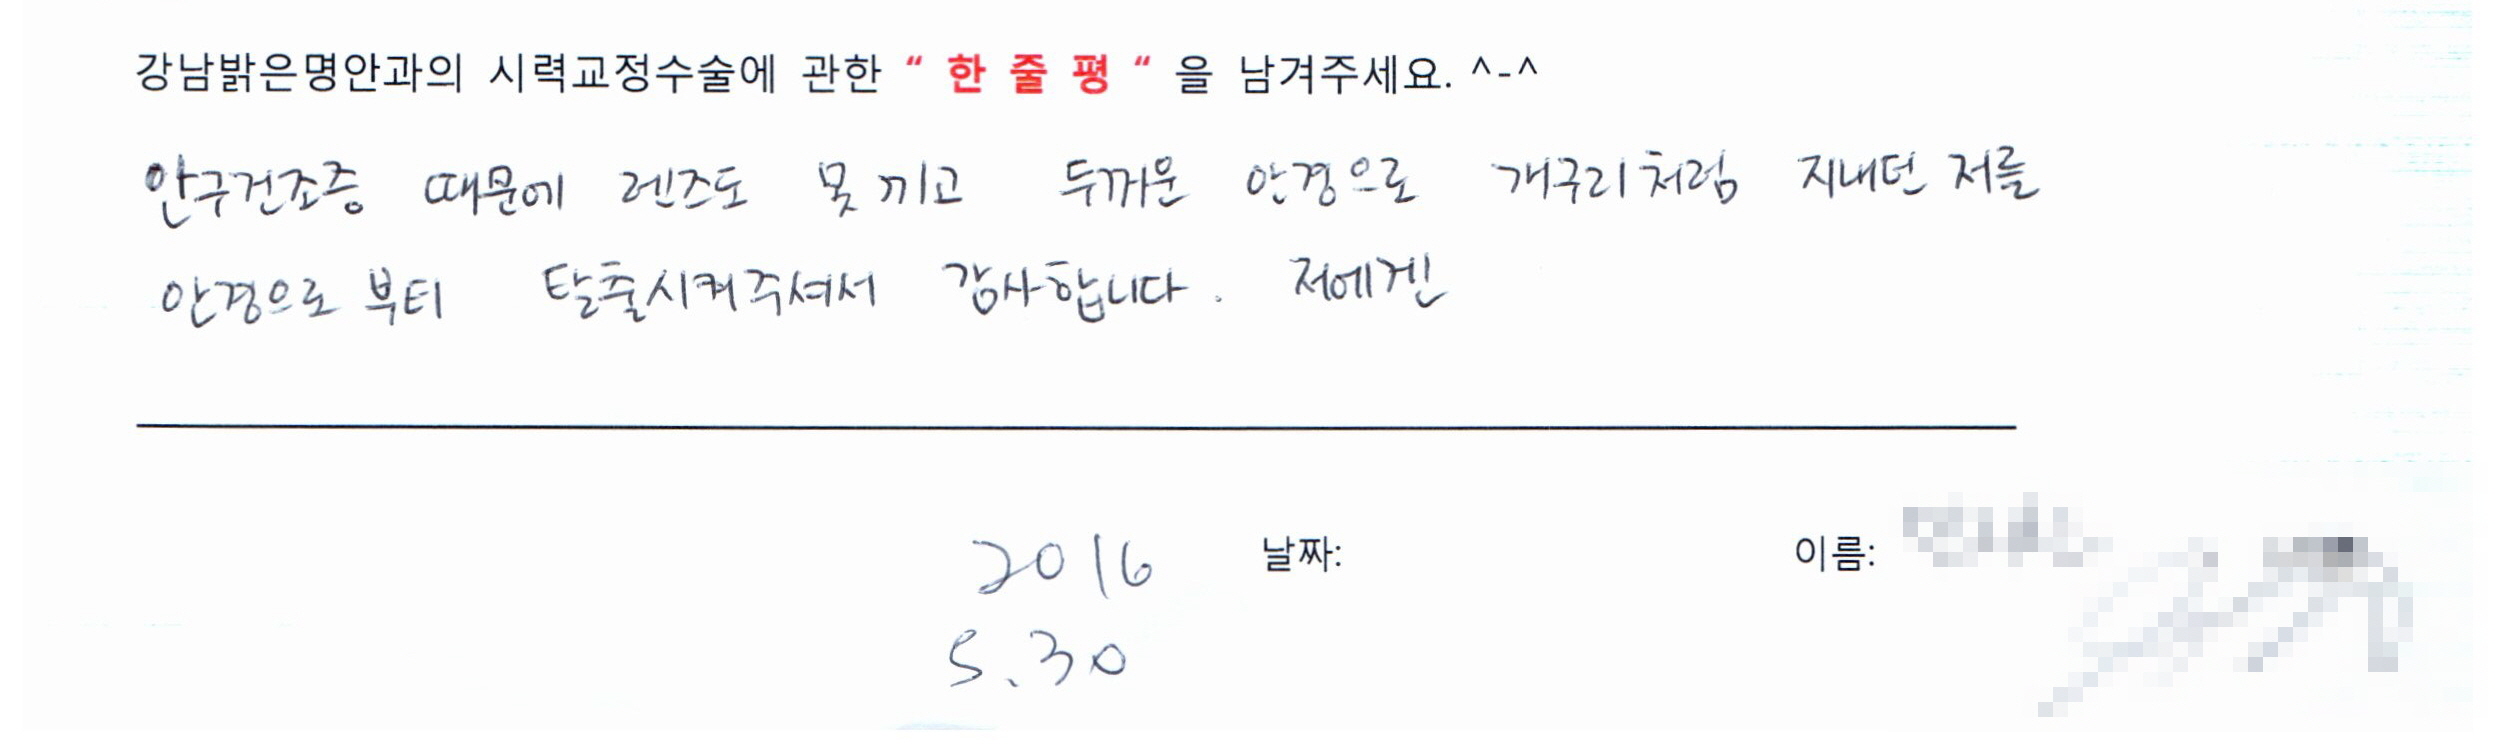 강남밝은명안과의 시력교정수술에 관한 “ 한 줄 평 “ 을 남겨주세요. ^-^
안구건조증 때문에 렌즈도 못 끼고 두꺼운 안경으로 개구리처럼 지내던 저를
안경으로 부터 탈출시켜주셔서 감사합니다. 저에겐
2016 날짜: 이름:
5.30